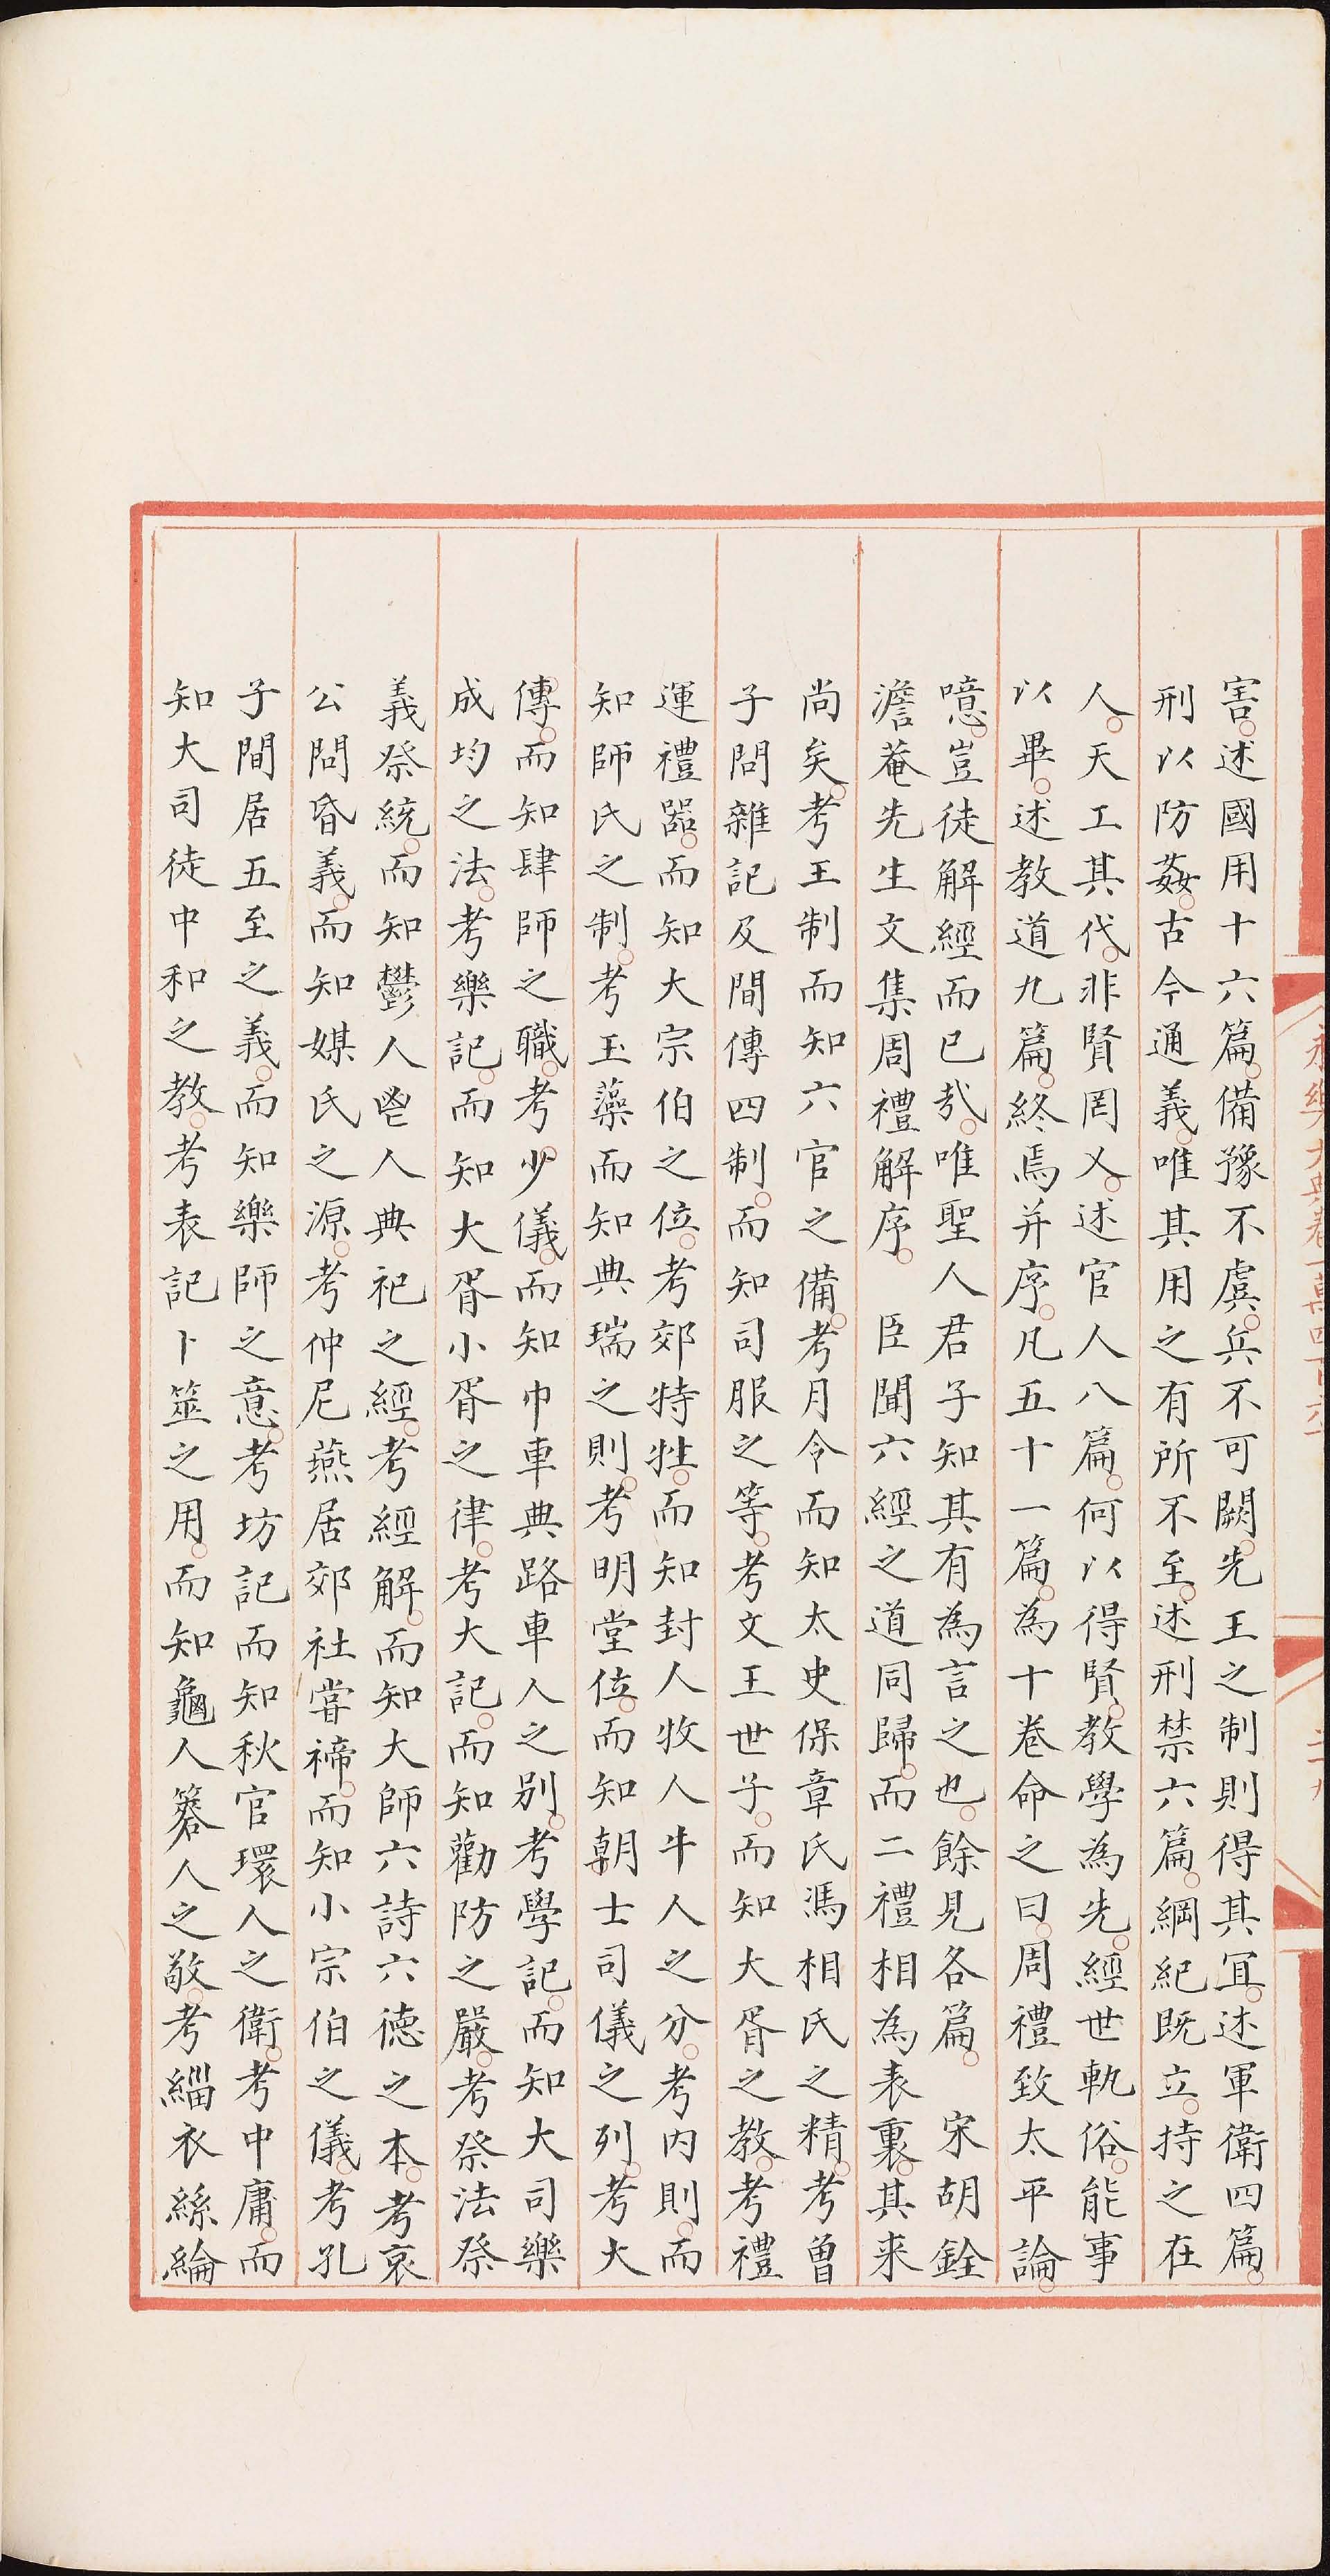 害。述國用十六篇。備豫不虞。兵不可闕。先王之制則得其冝。述軍衛四篇。
刑以防姦。古今通義。唯其用之有所不至。述刑禁六篇。綱紀既立。持之在
人。天工其代。非賢罔乂。述官人八篇。何以得賢。教學為先。經世軌俗。能事
以畢。述教道九篇。終焉并序。凡五十一篇。為十卷命之曰。周禮致太平論。
噫。豈徒解經而已㢤。唯聖人君子知其有為言之也。餘見各篇。 宋胡銓
澹菴先生文集周禮解序。 臣聞六經之道同歸。而二禮相為表裏。其来
尚矣。考王制而知六官之備。考月令而知太史保章氏馮相氏之精。考曾
子問雜記及間傳四制。而知司服之等。考文王世子。而知大胥之教。考禮
運禮器。而知大宗伯之位。考郊特牲。而知封人牧人牛人之分。考内則。而
知師氏之制。考玉藻而知典瑞之則。考明堂位。而知朝士司儀之列。考大
傳。而知肆師之職。考少儀。而知巾車典路車人之別。考學記。而知大司樂
成均之法。考樂記。而知大胥小胥之律。考大記。而知勸防之嚴。考祭法祭
義祭統。而知鬱人鬯人典祀之經。考經解。而知大師六詩六徳之本。考哀
公問昏義。而知媒氏之源。考仲尼燕居郊社甞禘。而知小宗伯之儀。考孔
子間居五至之義。而知樂師之意。考坊記而知秋官環人之衛。考中庸。而
知大司徒中和之教。考表記卜筮之用。而知龜人簭人之敬。考緇衣絲綸